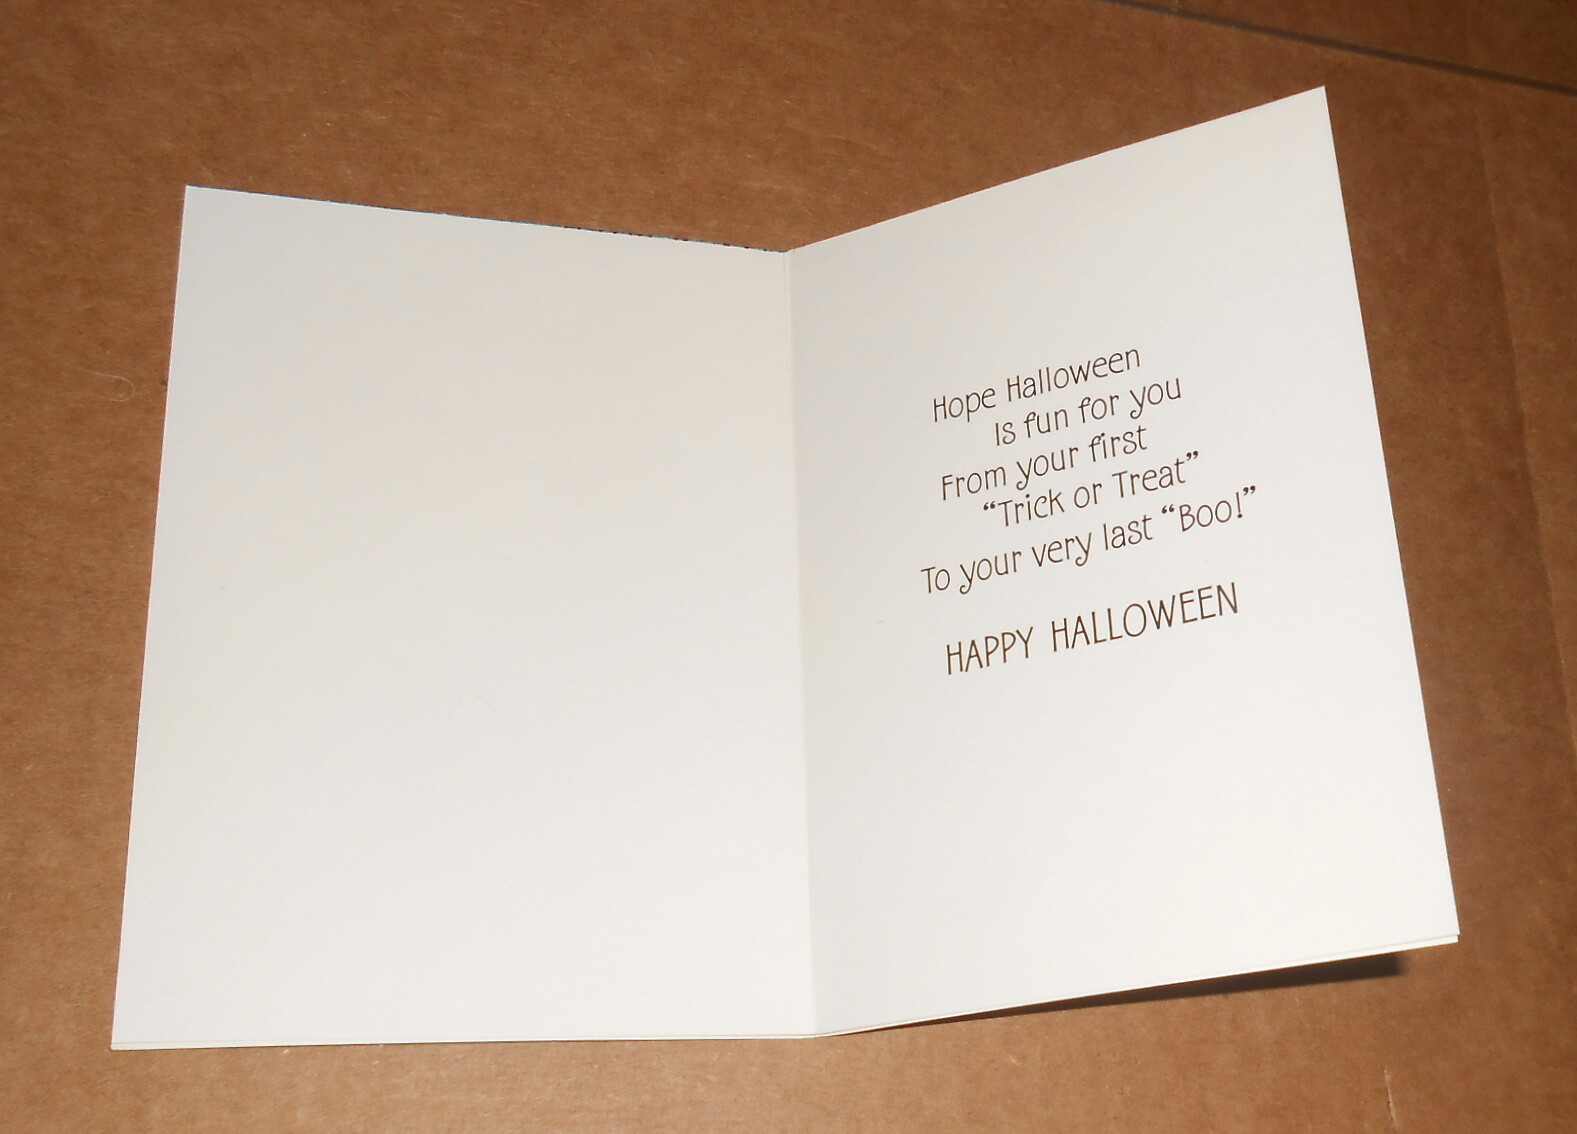 Hope Halloween
Is fun for you
From your first
“Trick or Treat”
To your very last “Boo!”
HAPPY HALLOWEEN